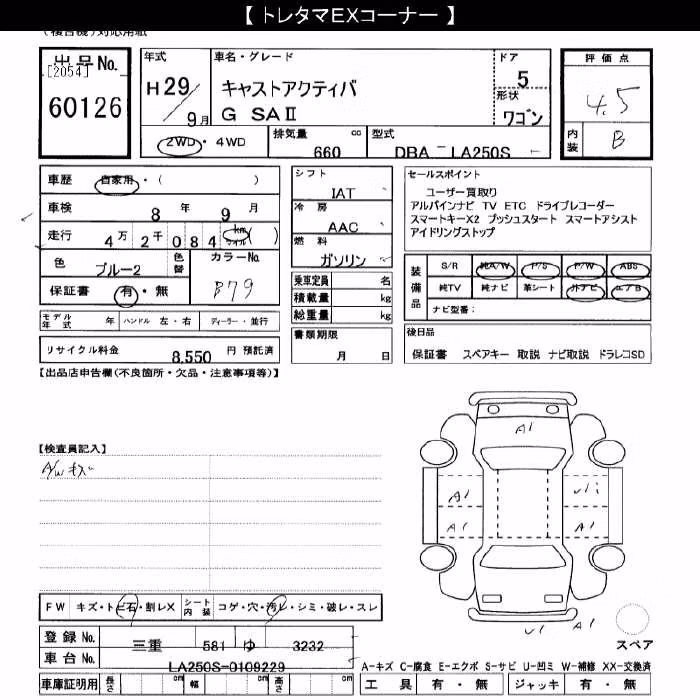 【 トレタマEXコーナー 】
(複合機)対応用紙
出品No.
[2054]
60126
年式
H29/9月
車名・グレード
キャストアクティバ
G SAⅡ
ドア
5
形状
ワゴン
評価点
4.5
内装
B
2WD ・ 4WD
排気量 660 cc
型式 DBA － LA250S
車歴 自家用 ・ ( )
車検 8 年 9 月
走行 4万 2千 084 ( km マイル )
色 ブルー2 色替 カラーNo. B79
保証書 有 ・ 無
モデル年式 年 ハンドル 左・右 ディーラー・並行
リサイクル料金 8,550 円 預託済
シフト
IAT
冷房
AAC
燃料
ガソリン
乗車定員 名
積載量 kg
総重量 kg
書類期限
月 日
セールスポイント
ユーザー買取り
アルパインナビ TV ETC ドライブレコーダー
スマートキーX2 プッシュスタート スマートアシスト
アイドリングストップ
装備品
S/R 純A/W P/S P/W ABS
純TV 純ナビ 革シート 外ナビ エ/B
ナビ型番:
後日品
保証書 スペアキー 取説 ナビ取説 ドラレコSD
【出品店申告欄(不良箇所・欠品・注意事項等)】
【検査員記入】
A/Wキズ
A1
A1
A1
A1
U1
A1
スペア
FW キズ・トビ石・割レX シート内装 コゲ・穴・汚レ・シミ・破レ・スレ
登録No. 三重 581 ゆ 3232
車台No. LA250S-0109229
車庫証明用 長さ cm 幅 cm 高さ cm
A-キズ C-腐食 E-エクボ S-サビ U-凹ミ W-補修 XX-交換済
工具 有 ・ 無 ジャッキ 有 ・ 無